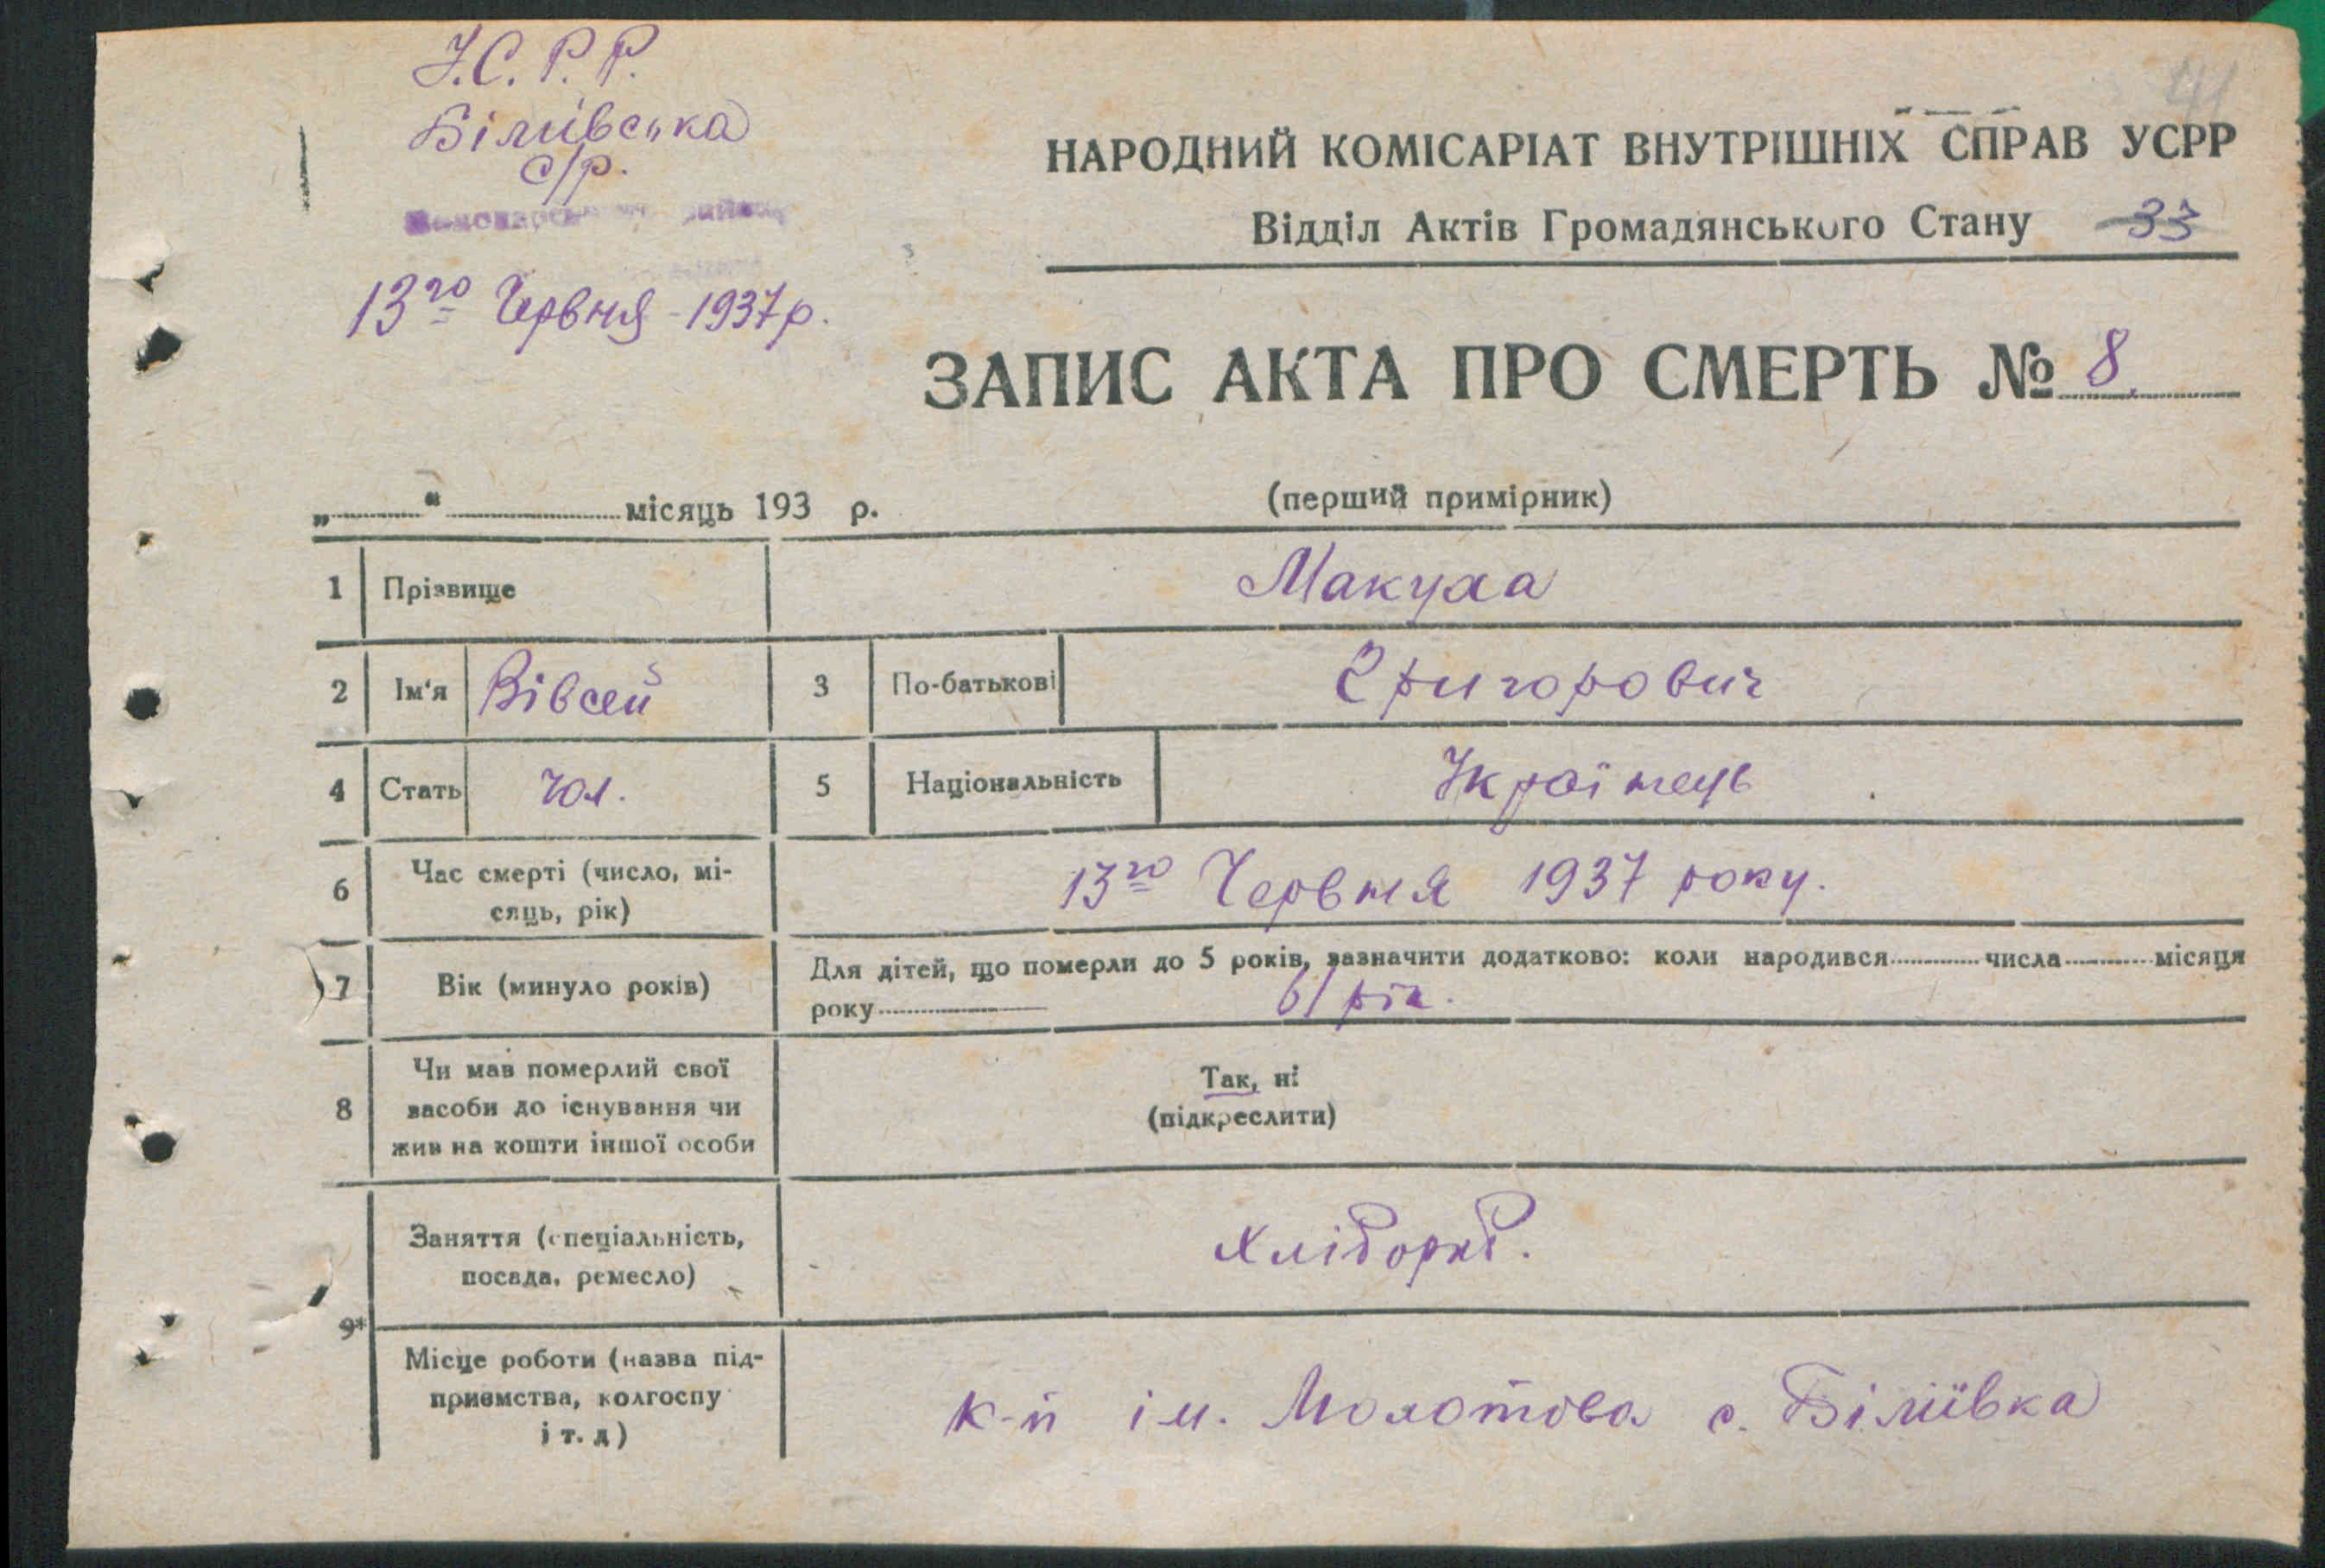 У.С.Р.Р.
Біліївська
с/р.
13го Червня - 1937 р.
41
НАРОДНИЙ КОМІСАРІАТ ВНУТРІШНІХ СПРАВ УСРР
Відділ Актів Громадянського Стану 33
ЗАПИС АКТА ПРО СМЕРТЬ № 8.
„ “ місяць 193 р.
(перший примірник)
1 Прізвище Макуха
2 Ім‘я Вівсей 3 По-батькові Григорович
4 Стать Чол. 5 Національність Українець
6 Час смерті (число, мі-
сяць, рік) 13го Червня 1937 року.
7 Вік (минуло років) Для дітей, що померли до 5 років, зазначити додатково: коли народився числа місяця
року 61 рік.
8 Чи мав померлий свої
засоби до існування чи
жив на кошти іншої особи
Так, ні
(підкреслити)
9*
Заняття (спеціальність,
посада, ремесло) Хлібороб.
Місце роботи (назва під-
приємства, колгоспу
і т. д) к-п ім. Молотова с. Біліївка